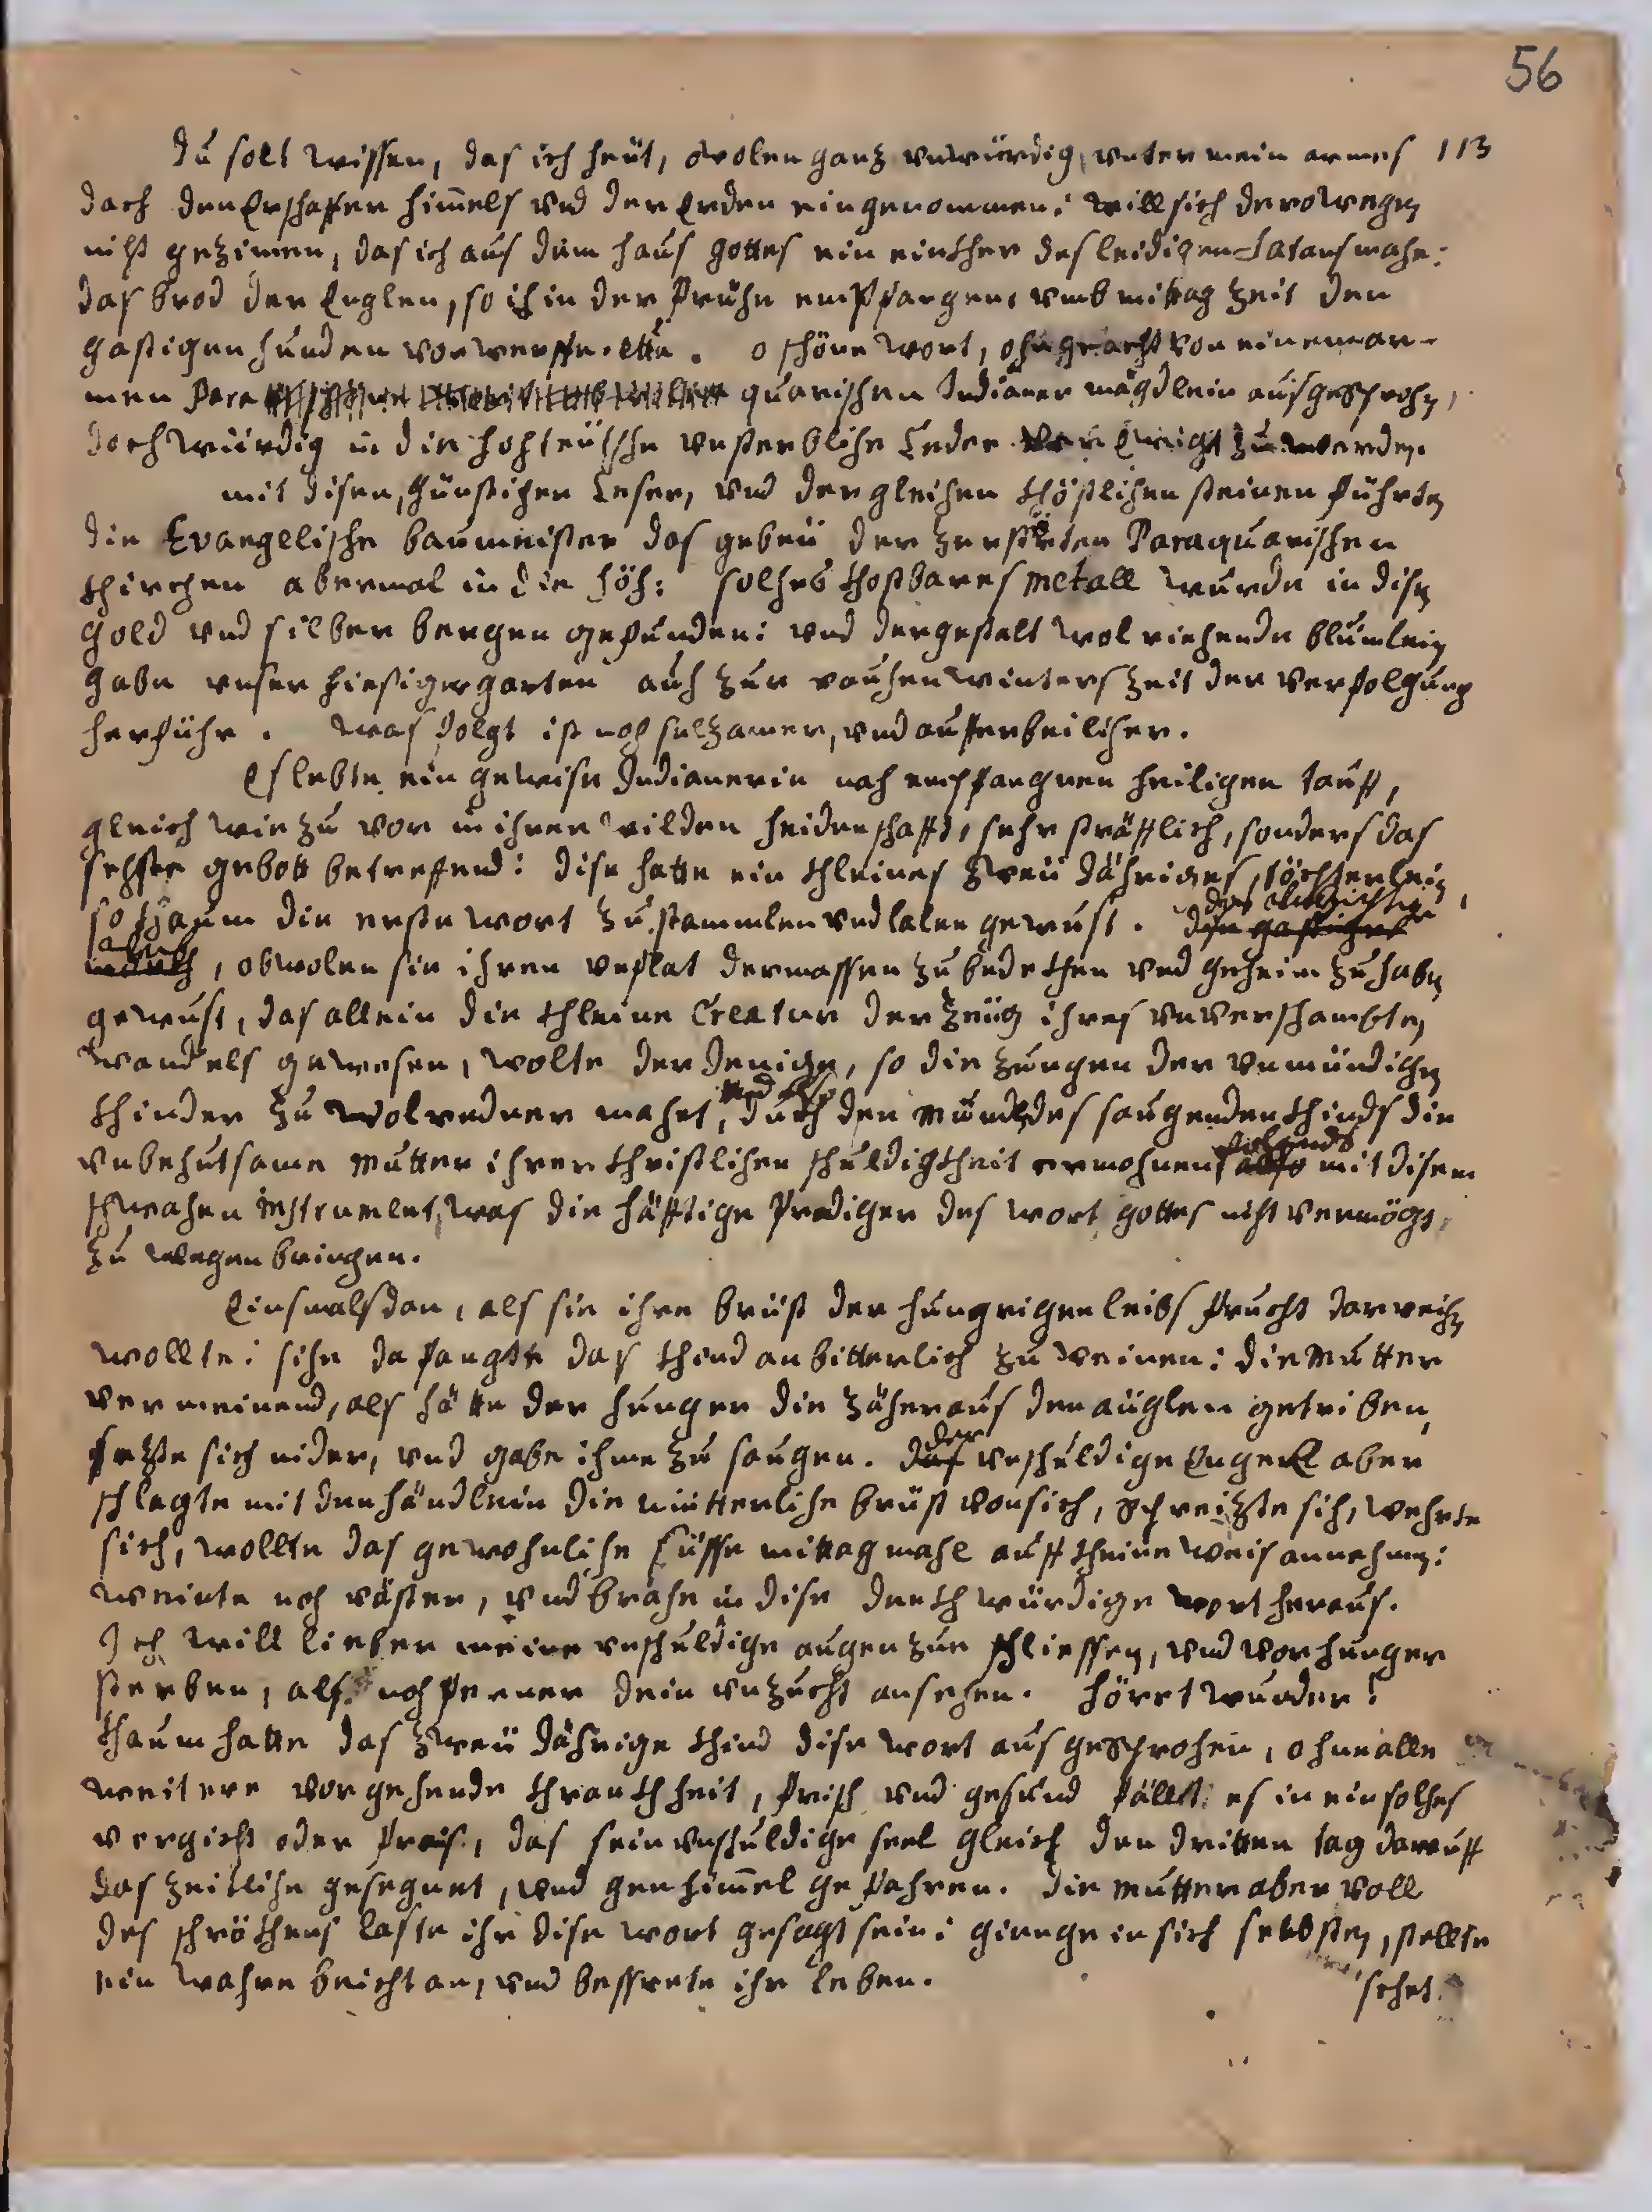 56
du solt wissen, das ich heüt, owolen ganz vnwürdig, vnter mein armes 113
dach den Erschaffer himmels vnd der Erden eingenommen: will sich derowegen
niht gezimen, das ich aus dem haus gottes ein einkher des leidigen Satans mahe:
das brod der Englen, so ich in der fruhe empfangen, vmb mittag zeit den
gastigen hunden vorwerffe. etta. o schöne wort, ohngeacht von einem ar-
men Para quarischen Indianer mägdlein ausgesprohen,
doch würdig in die hohteütsche vnsterblihe Ceder verEwigt zu werden.
mit disen, günstiger Leser, vnd dergleichen khöstlichen steinen führten
die Evangelische baumeister das gebeü der zerstörten Paraquarischen
khirchen abermal in die höh: solhes khostbares metall wurde in disen
gold vnd silber bergen gefunden: vnd dergestalt wol riehende blumlein
gabe vnser hiesiger garten auch zur rauhen winters zeit der verfolgung
herführ. was folgt ist noh selzamer, vnd aufferbeiliher.
Es lebte ein gewise Indianerin nah empfangnen heiligen tauff,
gleich wie zu vor in ihrer wilden heidenschafft, sehr sträfflich, sonders das
sehste gebott betreffend: dise hatte ein khleines zweü Jähriges töchterlein,
so khaum die erste wort zu stammlen vnd lalen gewust.
, obwolen sie ihren vnflat dermassen zu bedekhen vnd geheim zu haben
gewust, das allein die khleine Creatur der zeüg ihres vnverschambten
wandels gewesen, wolte der Jenige, so die zungen der vnmündigen
khinder zu wolredner mahet, durch den mund des saugenden khinds die
vnbehutsame mutter ihrer khristlichen schuldigkheit ermohnen, mit disem
schwahen Instrument, was die häfftige Prediger des wort gottes niht vermögt,
zu wegen bringen.
Einsmals dan, als sie ihre brüst der hungrigen leibs frucht darreihen
wollte: sihe da fangte das khind an bitterlich zu weinen: die mutter
vermeinend, als hätte der hunger die zäher aus den aüglen getriben,
sezte sich nider, vnd gabe ihme zu saugen. der vnschuldige Engerl aber
schlagte mit den händlein die mütterlihe brüst von sich, spreizte sih, wehrte
sich, wollte das gewohnlihe süsse mittagmahl auff kheine weis annehmen:
weinte noh väster, vnd brahe in dise denkhwürdige wort heraus.
Ich will lieber meine vnschuldige augen zur schliessen, vnd vor hunger
sterben, als noh ferner dein vnzucht ansehen. höret wunder!
khaum hatte das zweü Jährige khind dise wort ausgesprohen, ohne alle
weitere vorgehende khrankhheit, frish vnd gesund fällt es in ein solhes
vergicht oder frais, das sein vnshuldige seel gleich den dritten tag darauff
das zeitlihe gesegnet, vnd gen himmel gefahren. die mutter aber voll
des schrökhens laste ihr dise wort gesagt sein: gienge in sich selbsten, stellte
ein wahre beicht an, vnd bessrete ihr leben.
sehet